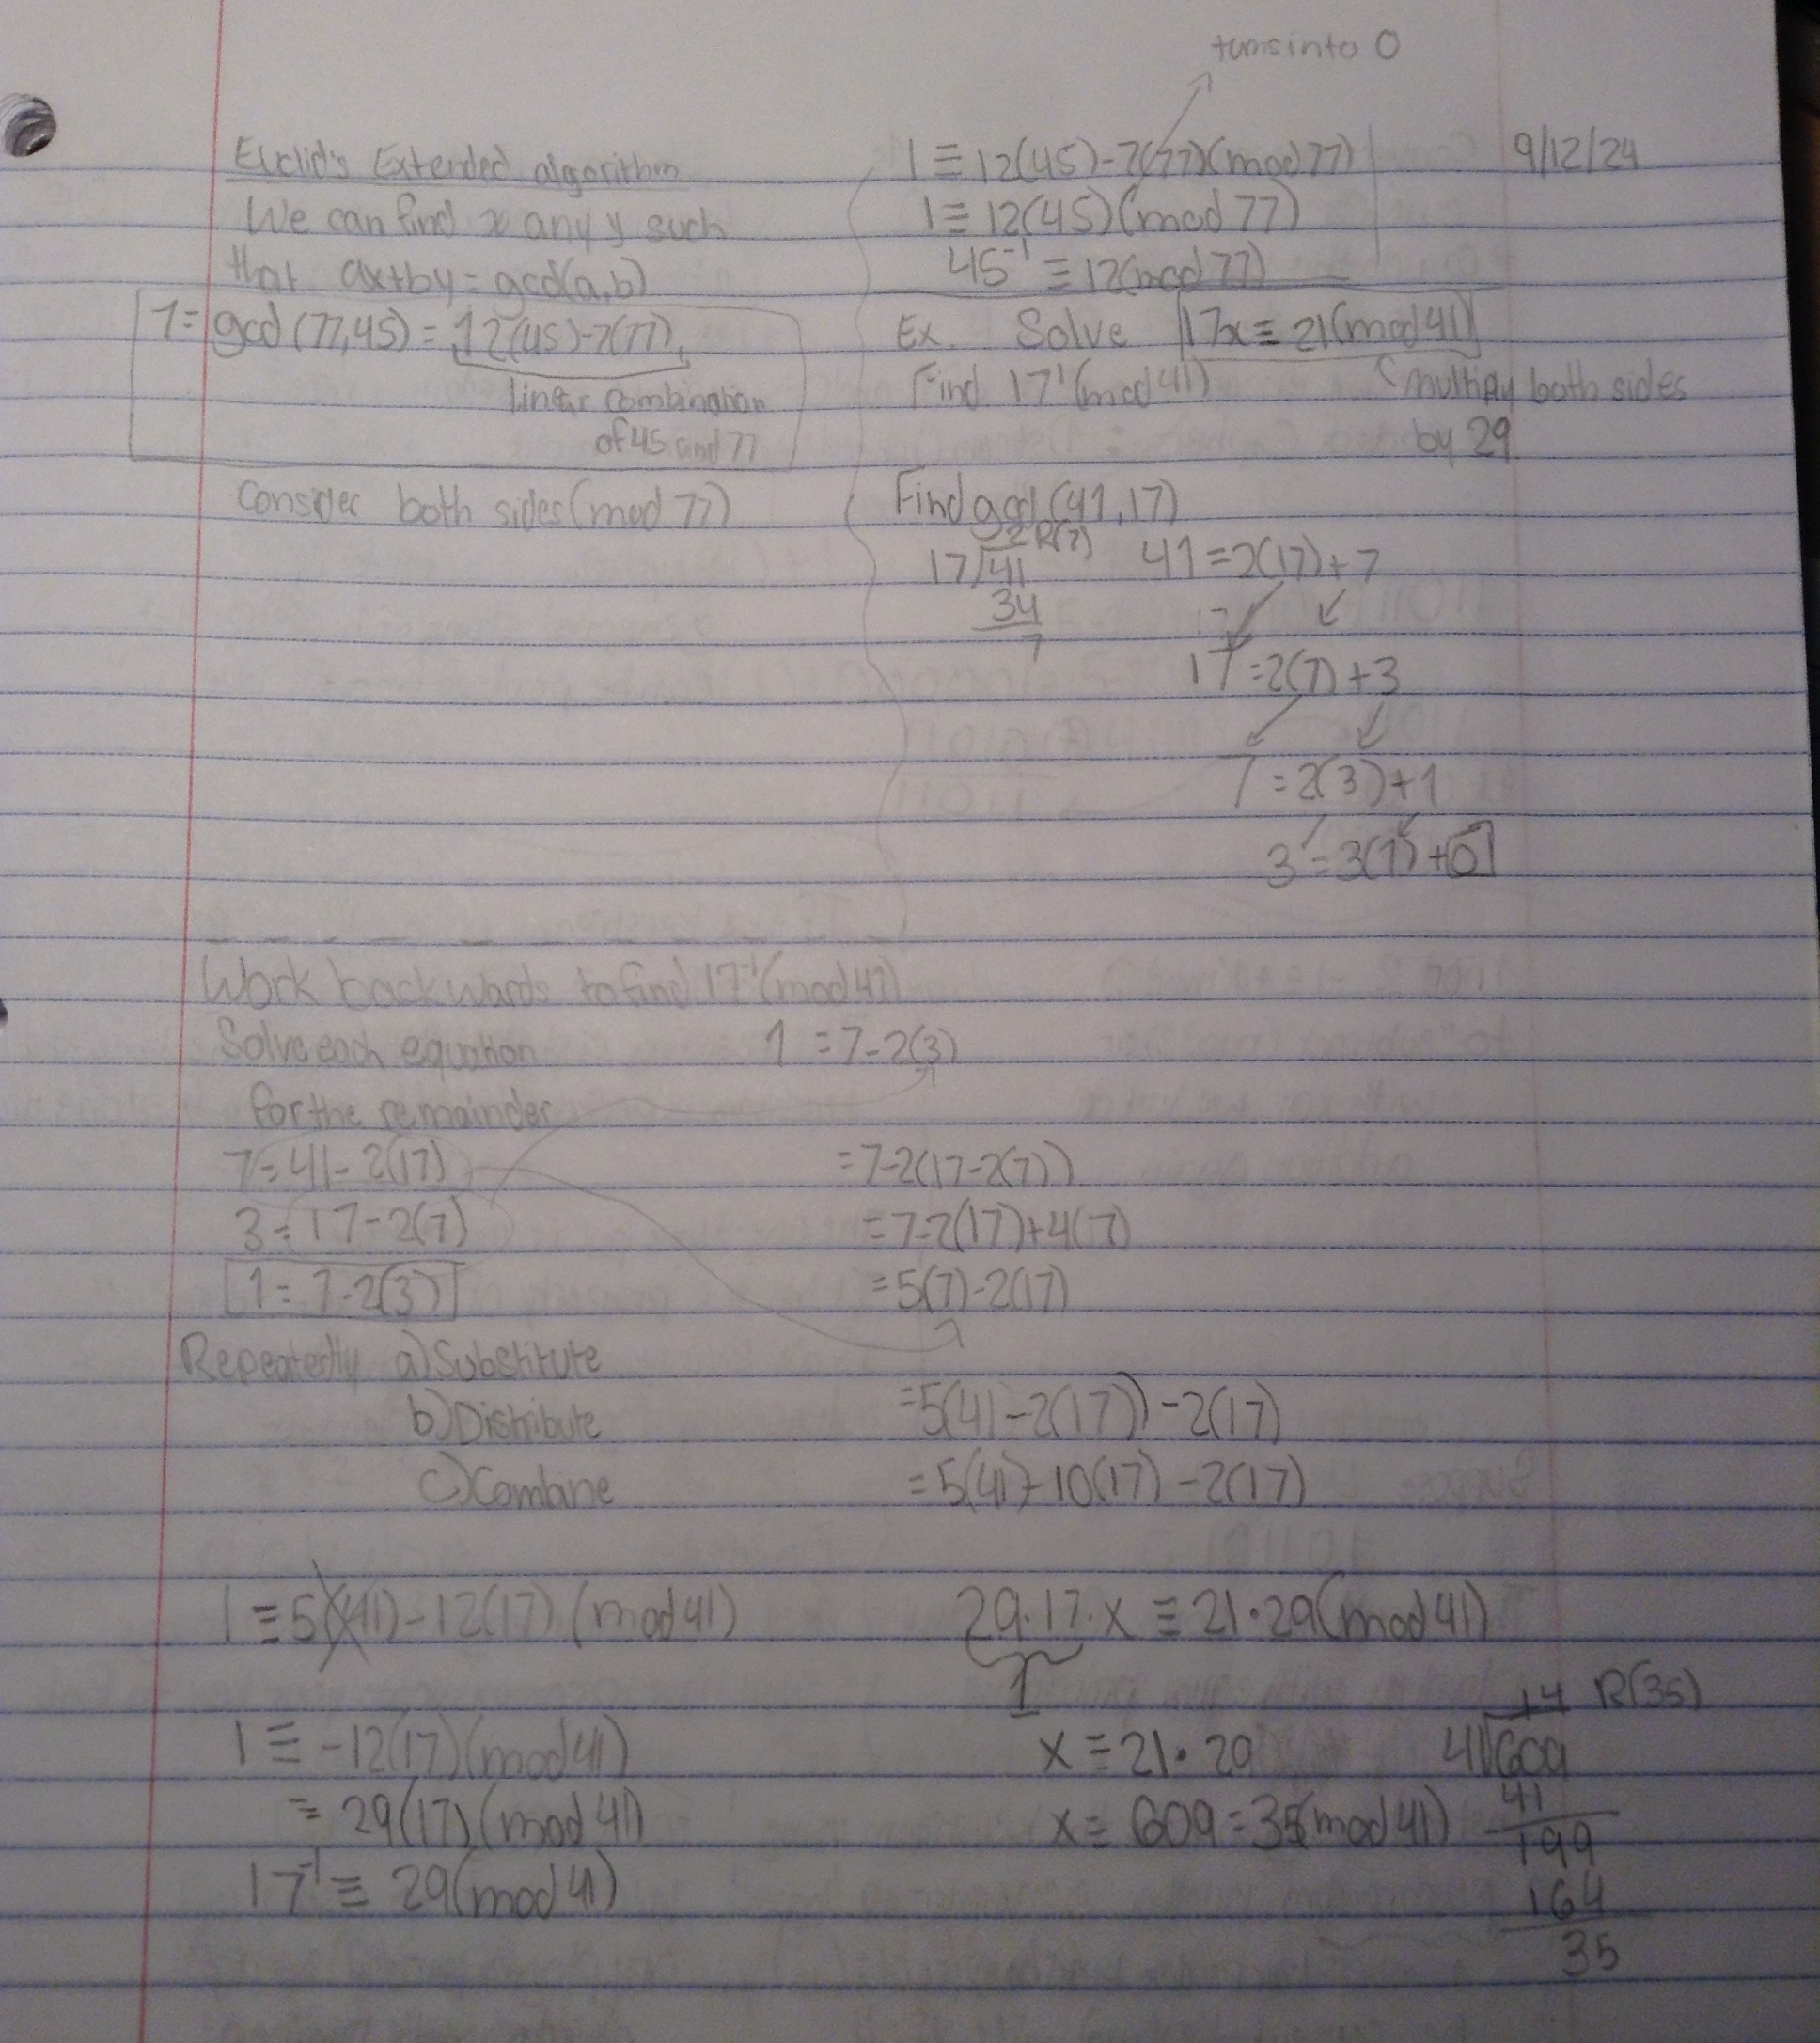 9/12/24
Euclid's Extended algorithm
We can find x any y such
that ax+by=gcd(a,b)
1=gcd(77,45)=12(45)-7(77)
linear combination
of 45 and 77
Consider both sides (mod 77)
turns into 0
1≡12(45)-7(77)(mod 77)
1≡12(45)(mod 77)
45⁻¹≡12(mod 77)
Ex. Solve 17x≡21(mod 41)
Find 17⁻¹(mod 41)
multiply both sides
by 29
Find gcd(41,17)
2 R(7)
17)41
34
7
41=2(17)+7
17=2(7)+3
7=2(3)+1
3=3(1)+0
Work backwards to find 17⁻¹(mod 41)
Solve each equation
for the remainder
7=41-2(17)
3=17-2(7)
1=7-2(3)
Repeatedly a)Substitute
b)Distribute
c)Combine
1=7-2(3)
=7-2(17-2(7))
=7-2(17)+4(7)
=5(7)-2(17)
=5(41-2(17))-2(17)
=5(41)-10(17)-2(17)
1≡5(41)-12(17)(mod 41)
1≡-12(17)(mod 41)
≡29(17)(mod 41)
17⁻¹≡29(mod 41)
29·17·x≡21·29(mod 41)
1
x≡21·29
x≡609=35(mod 41)
14 R(35)
41)609
41
199
164
35